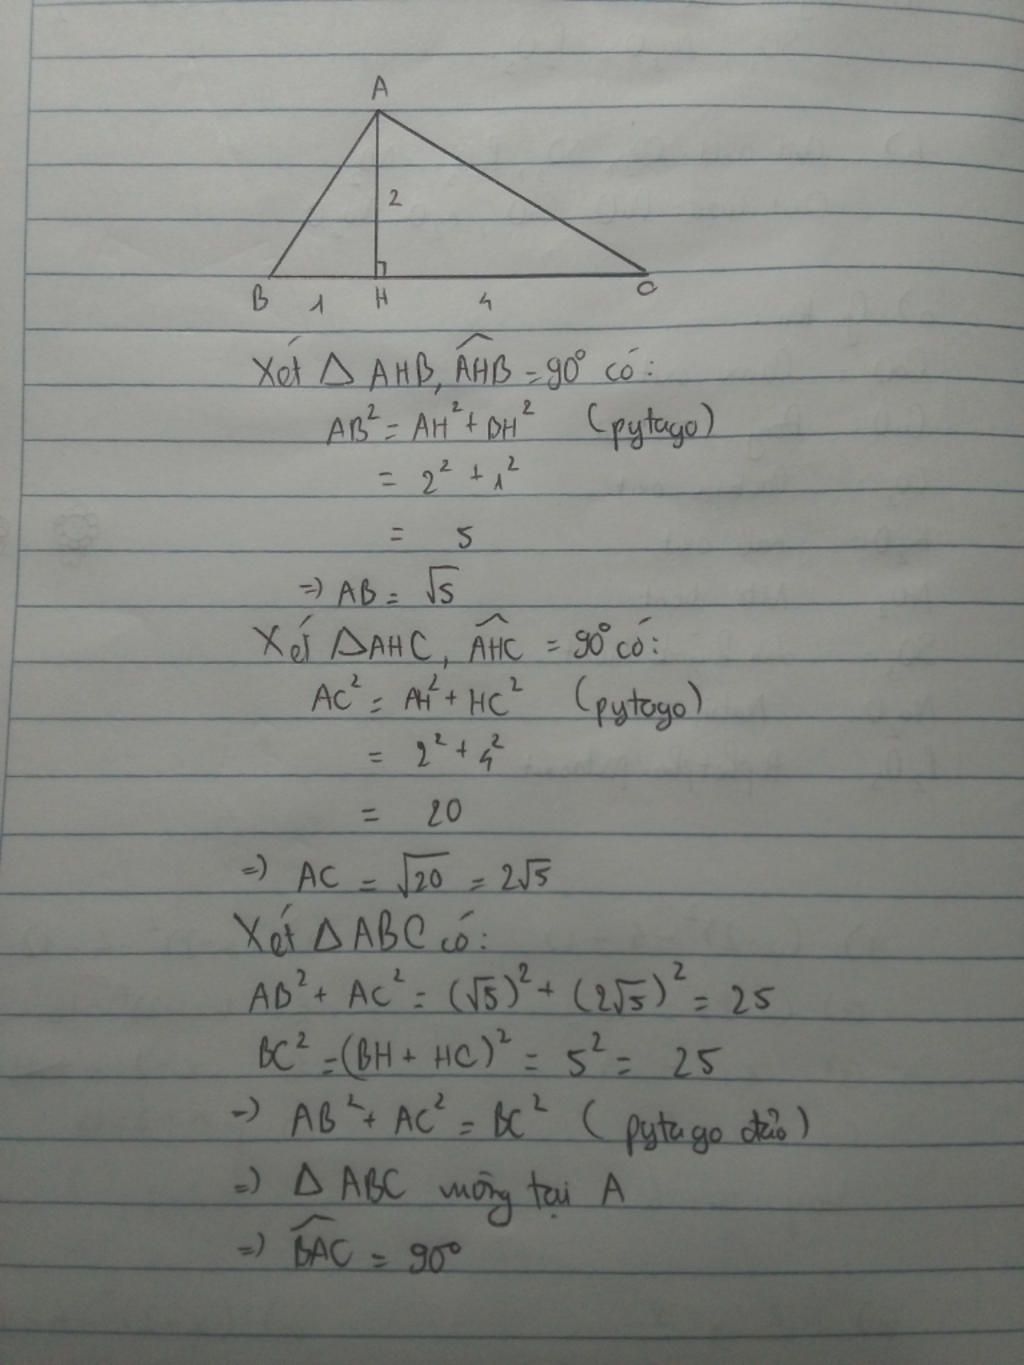 A
2
B 1 H 4 C
Xét Δ AHB, ∠AHB = 90° có:
AB² = AH² + BH² (pytago)
= 2² + 1²
= 5
=> AB = √5
Xét ΔAHC, ∠AHC = 90° có:
AC² = AH² + HC² (pytago)
= 2² + 4²
= 20
=> AC = √20 = 2√5
Xét ΔABC có:
AB² + AC² = (√5)² + (2√5)² = 25
BC² = (BH + HC)² = 5² = 25
=> AB² + AC² = BC² (pytago đảo)
=> Δ ABC vuông tại A
=> ∠BAC = 90°